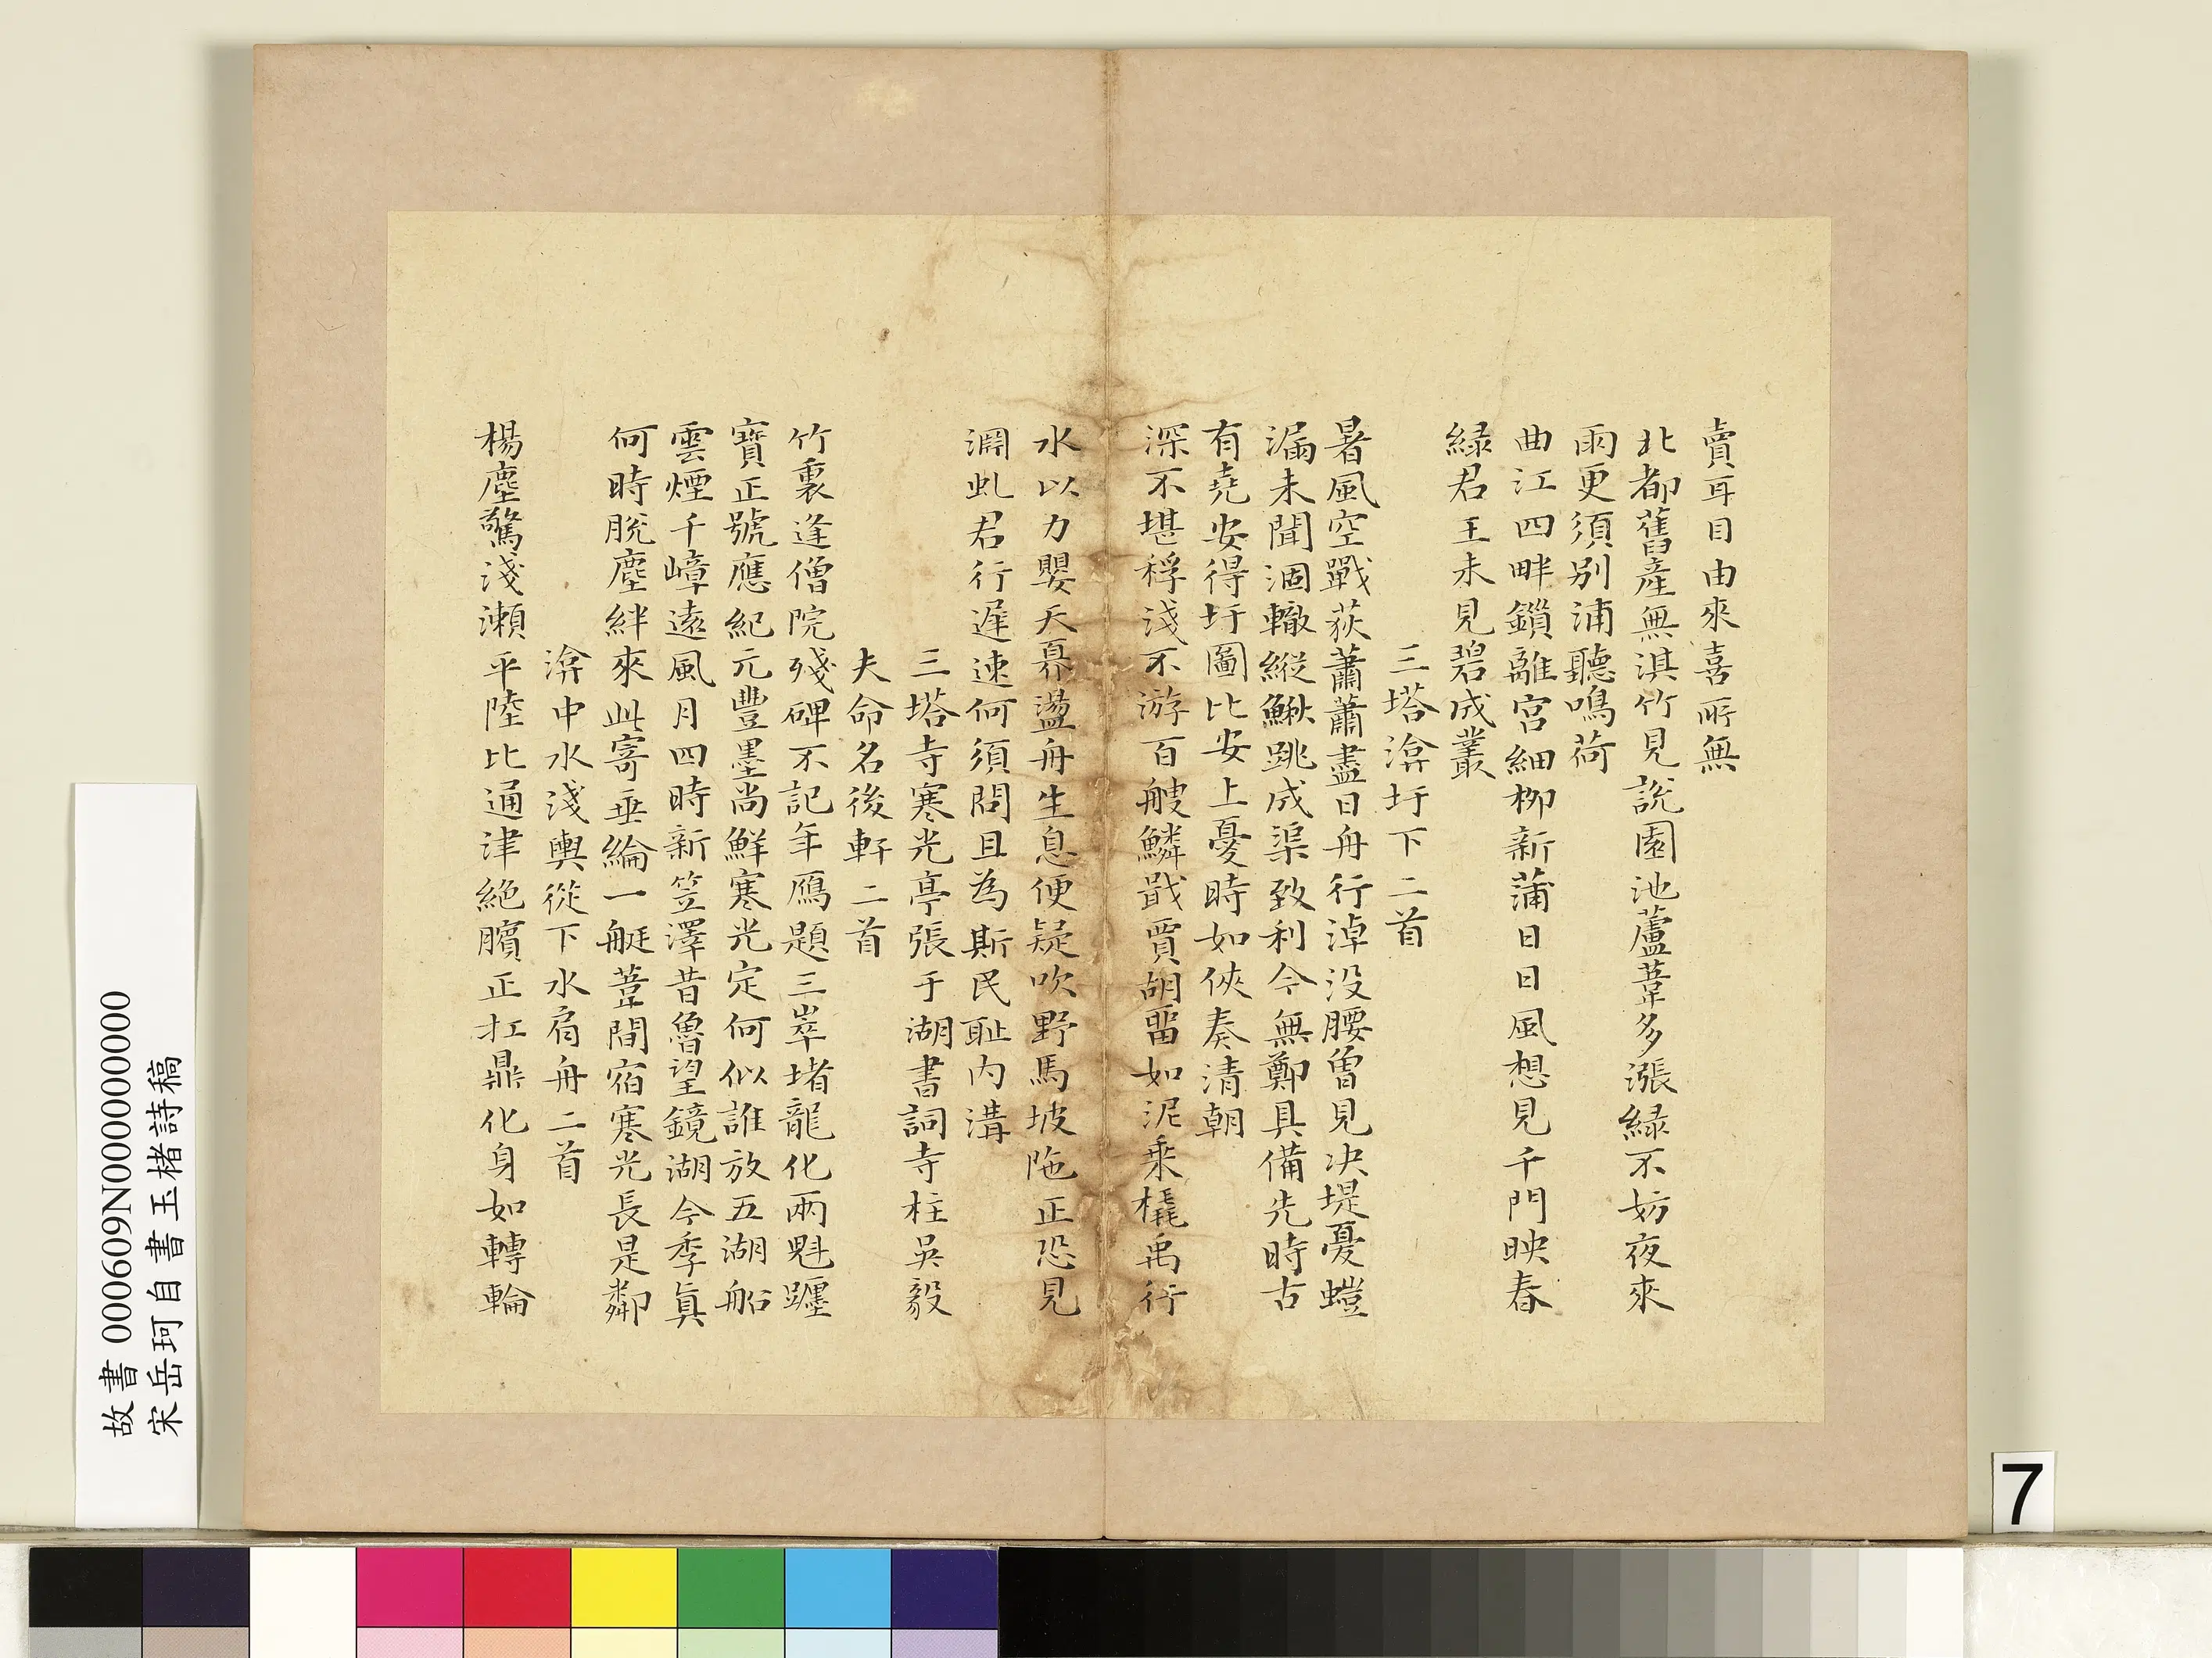 賣耳目由來喜所無
北都舊産無淇竹見説園池蘆葦多漲緑不妨夜來
雨更須别浦聽鳴荷
曲江四畔鎖離宮細柳新蒲日日風想見千門映春
緑君王未見碧成叢
三塔渰圩下二首
暑風空戰荻蕭蕭盡日舟行淖没腰曽見决堤憂螘
漏未聞涸轍縱鰍跳成渠致利今無鄭具備先時古
有堯安得圩圖比安上憂時如俠奏清朝
深不堪稃淺不游百艘鱗戢賈胡留如泥乗橇禹行
水以力嬰天奡盪舟生息便疑吹野馬坡陁正恐見
淵虬君行遅速何須問且為斯民耻内溝
三塔寺寒光亭張于湖書詞寺柱吳毅
夫命名後軒二首
竹裏逢僧院殘碑不記年鴈題三崒堵龍化兩魁躔
寶正號應紀元豐墨尚鮮寒光定何似誰放五湖船
雲煙千嶂遠風月四時新笠澤昔魯望鏡湖今季真
何時脱塵絆來此寄垂綸一艇葦間宿寒光長是鄰
渰中水淺輿從下水肩舟二首
楊塵驚淺瀬平陸比通津絶臏正扛鼎化身如轉輪
故書 000609N000000000
宋岳珂自書玉楮詩稿
7